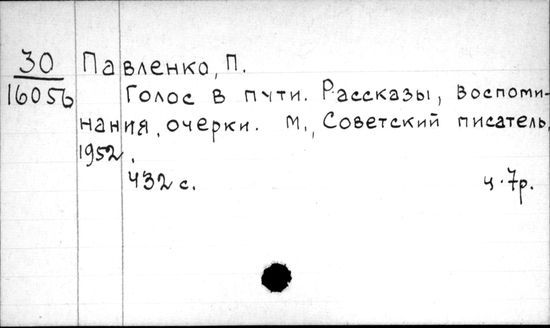 30 Павленко, П.
16056 Голос в пути. Рассказы, воспоми-
нания, очерки. М., Советский писатель,
1952.
432 с. ц. 7р.